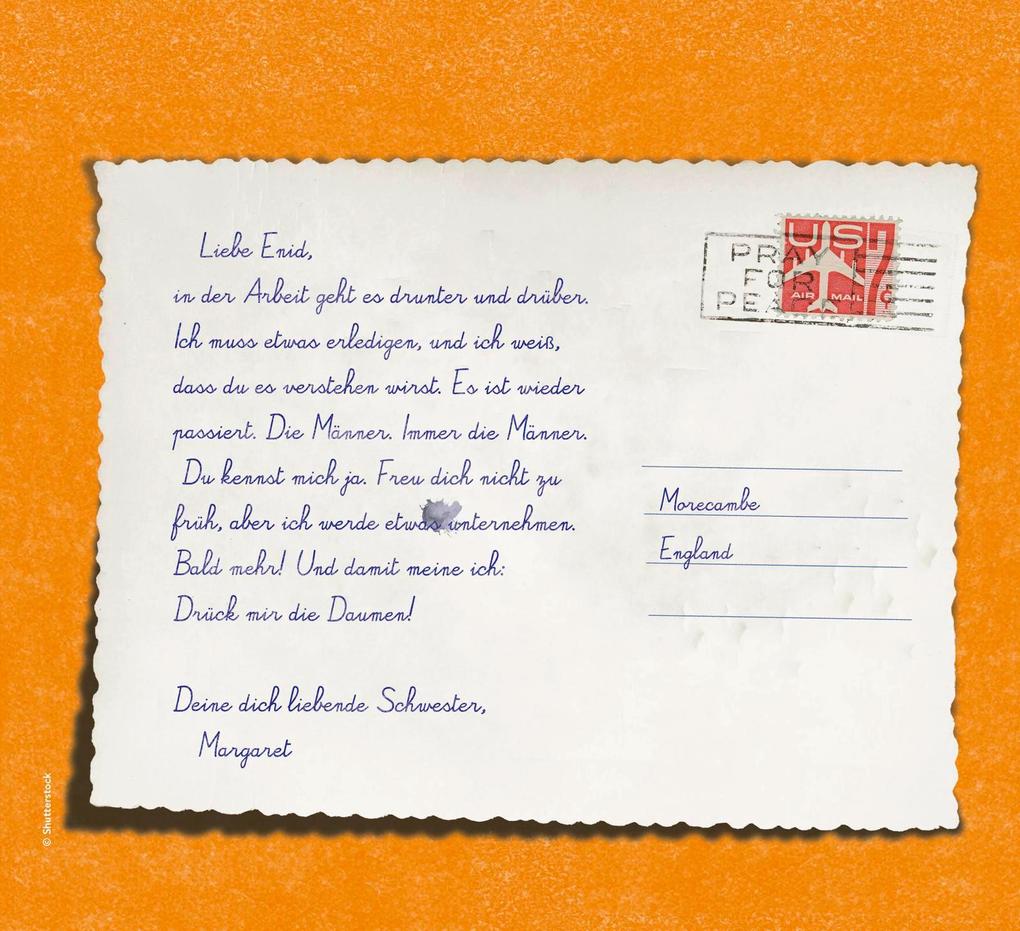 Liebe Enid,
in der Arbeit geht es drunter und drüber.
Ich muss etwas erledigen, und ich weiß,
dass du es verstehen wirst. Es ist wieder
passiert. Die Männer. Immer die Männer.
Du kennst mich ja. Freu dich nicht zu
früh, aber ich werde etwas unternehmen.
Bald mehr! Und damit meine ich:
Drück mir die Daumen!
Deine dich liebende Schwester,
Margaret
US 7¢
AIR MAIL
PRAY
FOR
PEACE
Morecambe
England
© Shutterstock